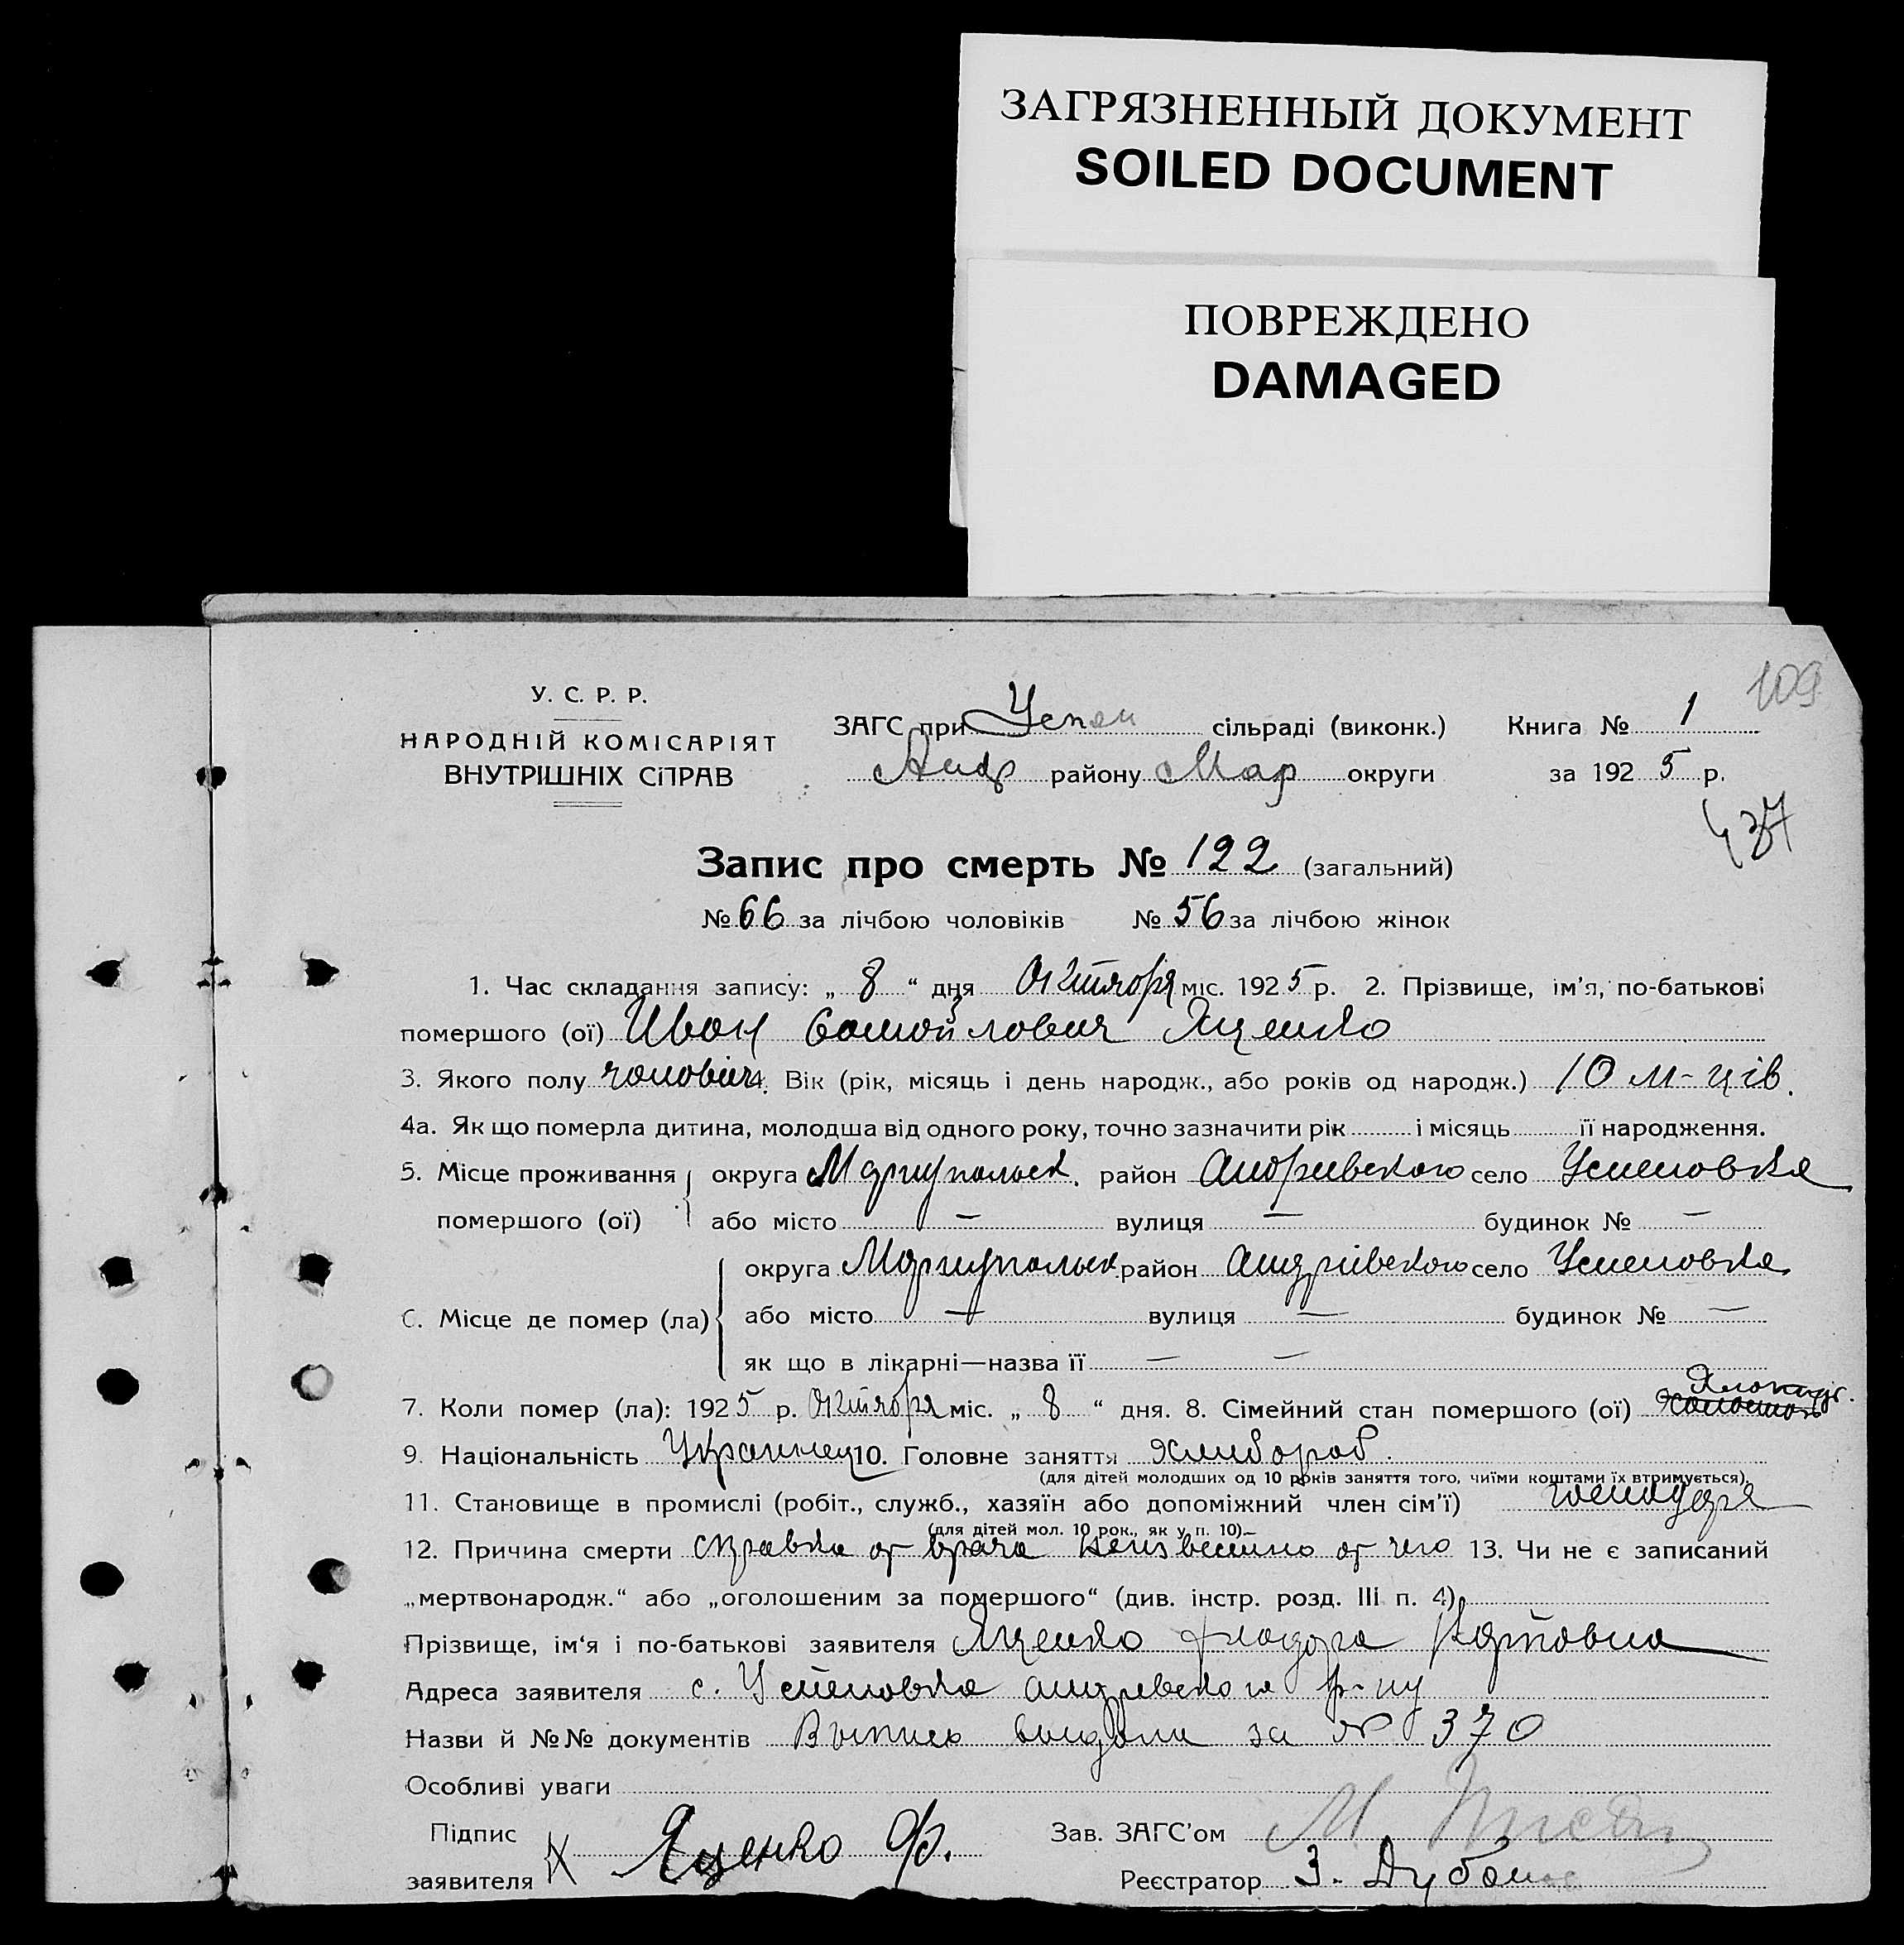 ЗАГРЯЗНЕННЫЙ ДОКУМЕНТ
SOILED DOCUMENT
ПОВРЕЖДЕНО
DAMAGED
109
У. С. Р. Р.
НАРОДНІЙ КОМІСАРІЯТ
ВНУТРІШНІХ СПРАВ
ЗАГС при Успен сільраді (виконк.) Книга № 1
Андр району Мар округи за 1925 р.
437
Запис про смерть № 122 (загальний)
№ 66 за лічбою чоловіків № 56 за лічбою жінок
1. Час складання запису: „ 8 “ дня Октября міс. 1925 р. 2. Прізвище, ім’я, по-батькові
помершого (ої) Иван Самойлович Яценко
3. Якого полу чоловіч 4. Вік (рік, місяць і день народж., або років од народж.) 10 м-ців.
4а. Як що померла дитина, молодша від одного року, точно зазначити рік і місяць її народження.
5. Місце проживання округа Маріупольск. район Андрівского село Успеновка
помершого (ої) або місто — вулиця — будинок № —
округа Маріупольск. район Андрівского село Успеновка
6. Місце де помер (ла) або місто — вулиця — будинок № —
як що в лікарні—назва її — —
7. Коли помер (ла): 1925 р. Октября міс. „ 8 “ дня. 8. Сімейний стан помершого (ої)
9. Національність Украинец 10. Головне заняття хлибороб.
(для дітей молодших од 10 років заняття того, чиїми коштами їх втримується).
11. Становище в промислі (робіт., служб., хазяїн або допоміжний член сім’ї) господаря
(для дітей мол. 10 рок., як у п. 10)
12. Причина смерти справка от врача неизвестно от чего 13. Чи не є записаний
„мертвонародж.“ або „оголошеним за помершого“ (див. інстр. розд. III п. 4)
Прізвище, ім‘я і по-батькові заявителя Яценко Карповна
Адреса заявителя с. Успеновка р-ну
Назви й №№ документів Выпись выдана за № 370
Особливі уваги
Підпис
заявителя Х Яценко Ф.
Зав. ЗАГС’ом М
Реєстратор З.